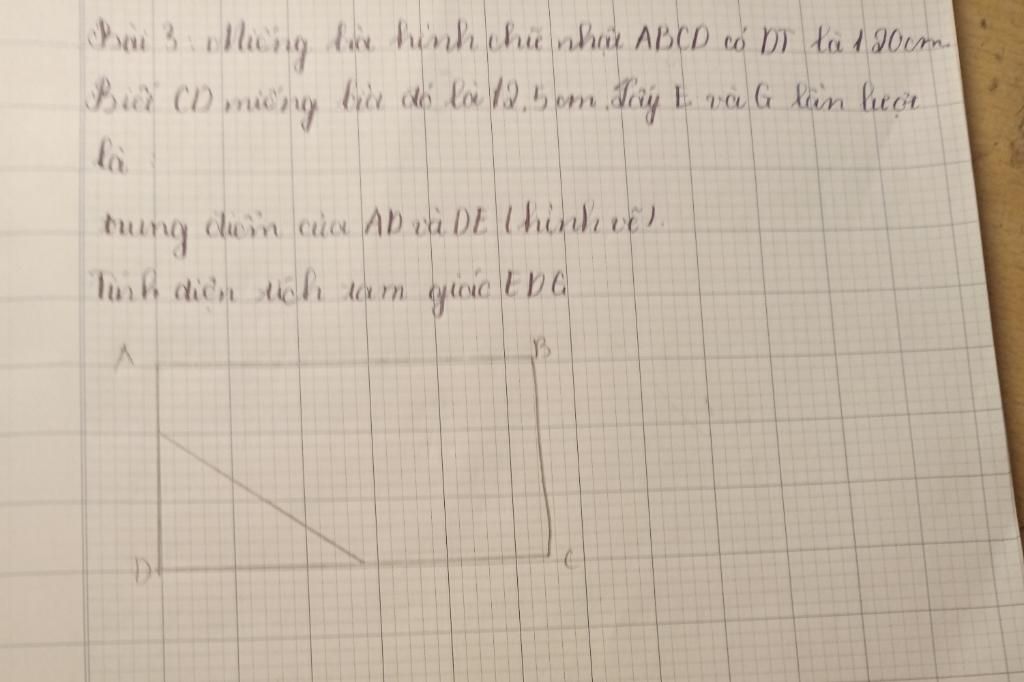 Bài 3: Miếng bìa hình chữ nhật ABCD có DT là 120cm
Biết CD miếng bìa đó là 12,5cm. Lấy E và G lần lượt
là
trung điểm của AD và DE (hình vẽ).
Tính diện tích tam giác EDG
A B
D C